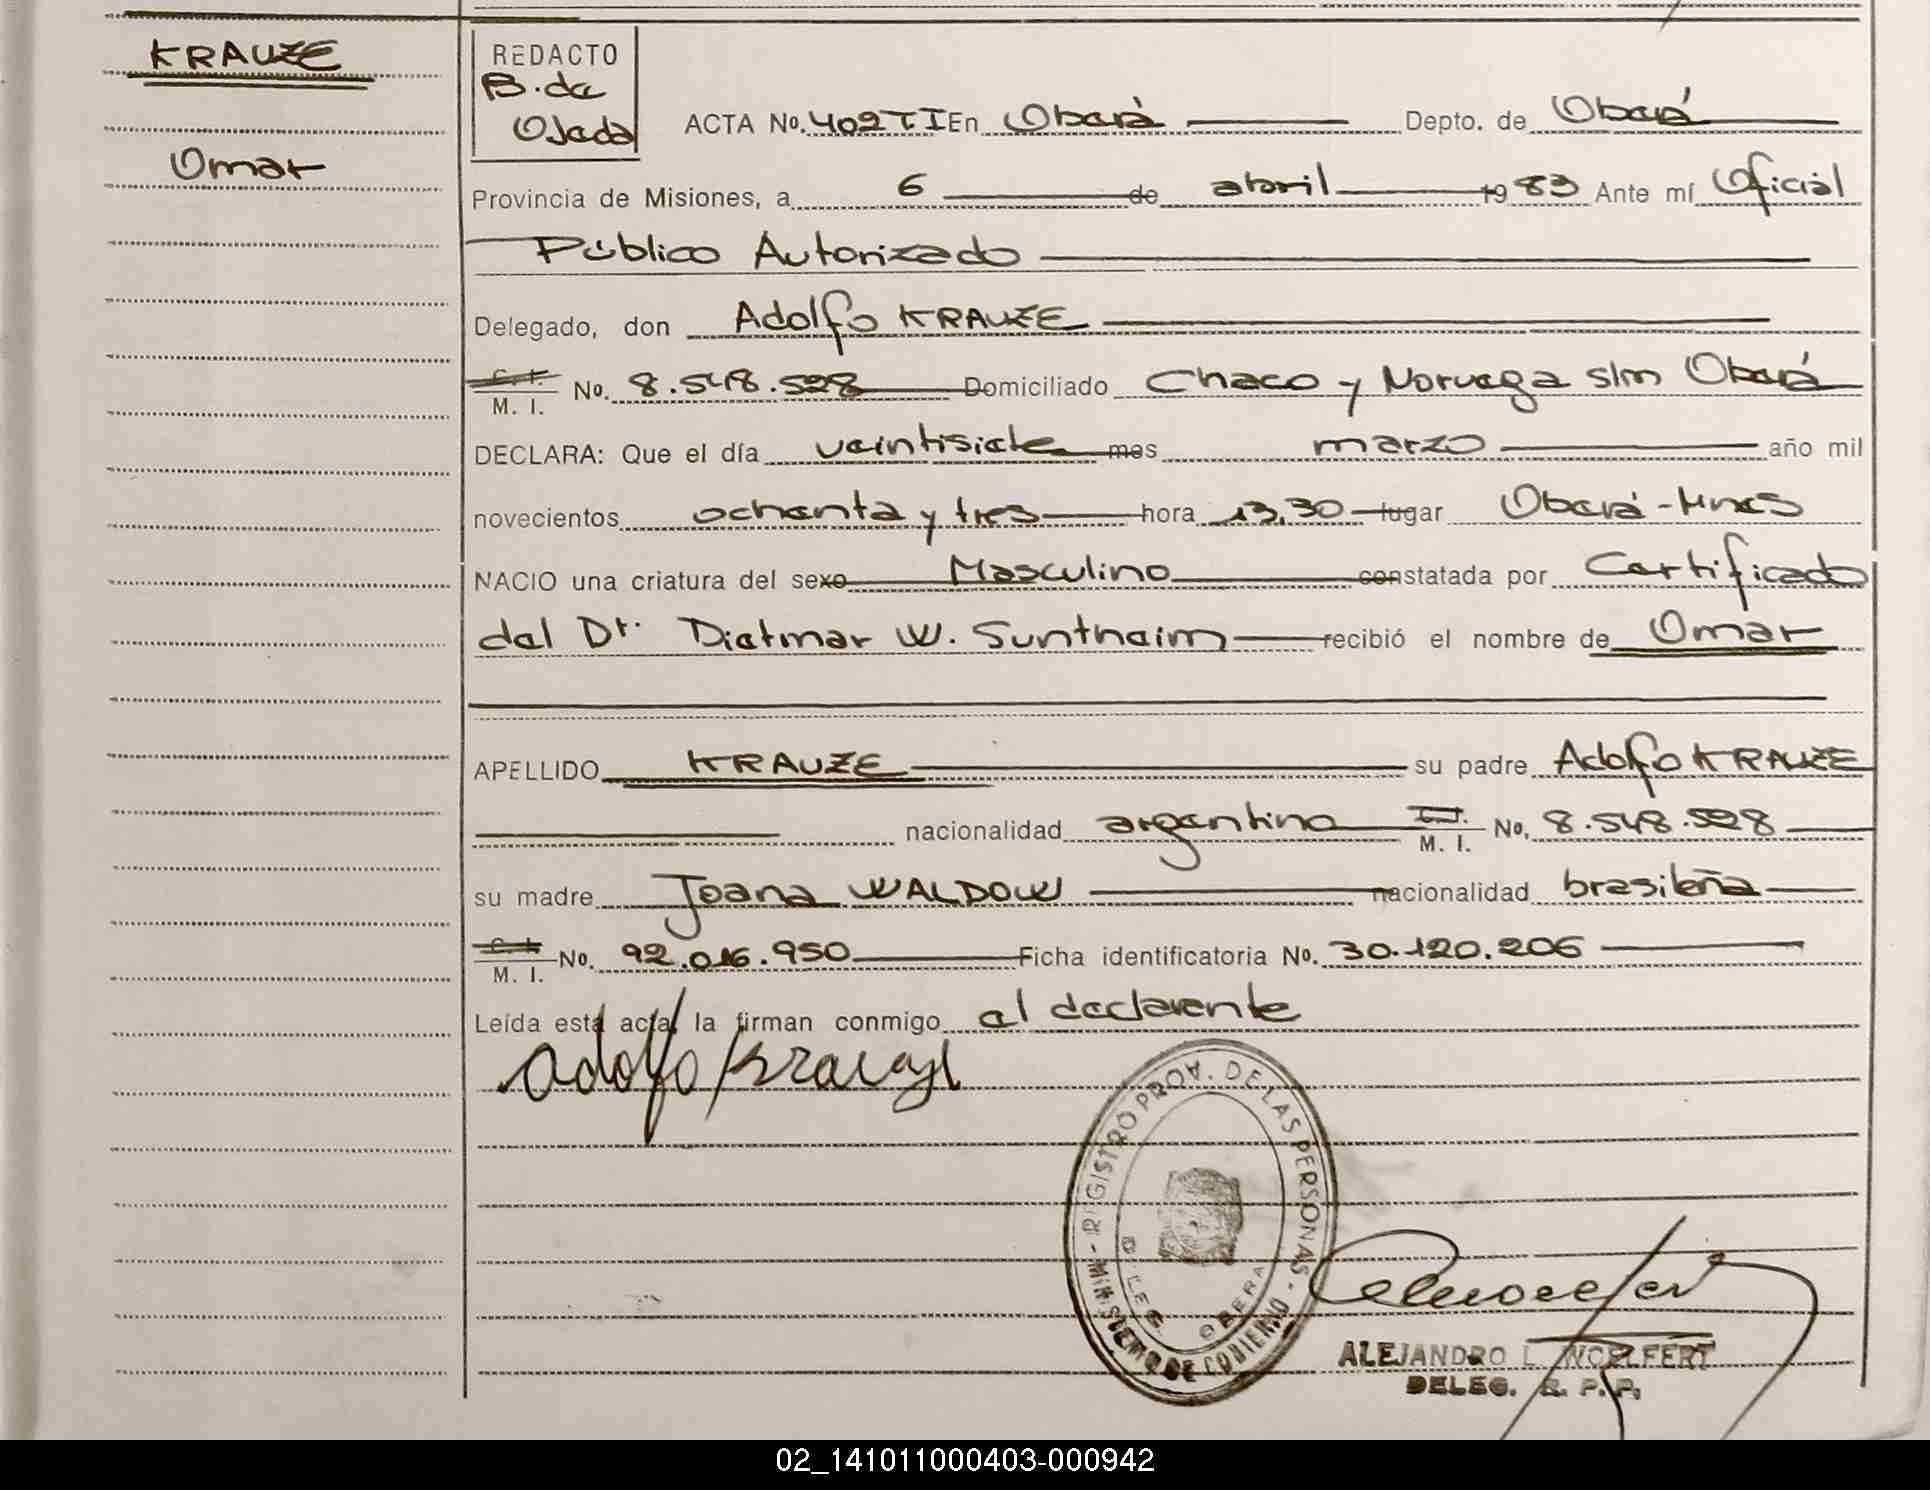 KRAUZE
Omar
REDACTO
B. de
Ojeda
ACTA No. 402 TI En Oberá Depto. de Oberá
Provincia de Misiones, a 6 de abril 19 83 Ante mí Oficial
Público Autorizado
Delegado, don Adolfo KRAUZE
C. I.
M. I. No. 8.548.528 Domiciliado Chaco y Noruega s/n Oberá
DECLARA: Que el día veintisiete mes marzo año mil
novecientos ochenta y tres hora 13,30 lugar Oberá-Mnes
NACIO una criatura del sexo Masculino constatada por Certificado
del Dr. Dietmar W. Suntheim recibió el nombre de Omar
APELLIDO KRAUZE su padre Adolfo KRAUZE
nacionalidad argentina C. I. M. I. No. 8.548.528
su madre Joana WALDOW nacionalidad brasileña
C. I.
M. I. No. 92.016.950 Ficha identificatoria No. 30.120.206
Leída esta acta, la firman conmigo el declarente
Adolfo Krauze
REGISTRO PROV. DE LAS PERSONAS - MINISTERIO DE GOBIERNO
OBERA
ALEJANDRO L. WOELFERT
DELEG. R. P. P.
02_141011000403-000942